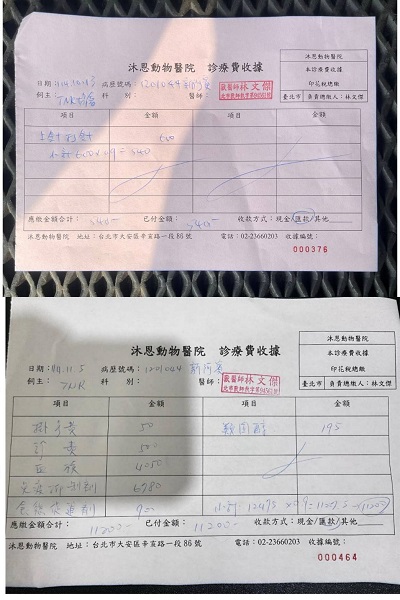 沐恩動物醫院 診療費收據
沐恩動物醫院
本診療費收據
印花稅總繳
臺北市 負責總繳人：林文傑
日期： 病歷號碼：
飼主： 科 別： 醫師： 獸醫師林文傑
項目 金額 項目 金額
600
應繳金額合計： 540- 已付金額： 540- 收款方式：現金/匯款/其他
沐恩動物醫院 地址：台北市大安區辛亥路一段86號 電話：02-23660203 收據編號：
000376
沐恩動物醫院 診療費收據
沐恩動物醫院
本診療費收據
印花稅總繳
臺北市 負責總繳人：林文傑
日期：114.11.5 病歷號碼：
飼主：TNR 科 別： 醫師： 獸醫師林文傑
項目 金額 項目 金額
掛號費 50 195
診 費 500
4050
免疫抑制劑 6780
食慾促進劑 900 小計 12475 x0.9=
應繳金額合計： 11200- 已付金額： 11200- 收款方式：現金/匯款/其他
沐恩動物醫院 地址：台北市大安區辛亥路一段86號 電話：02-23660203 收據編號：
000464